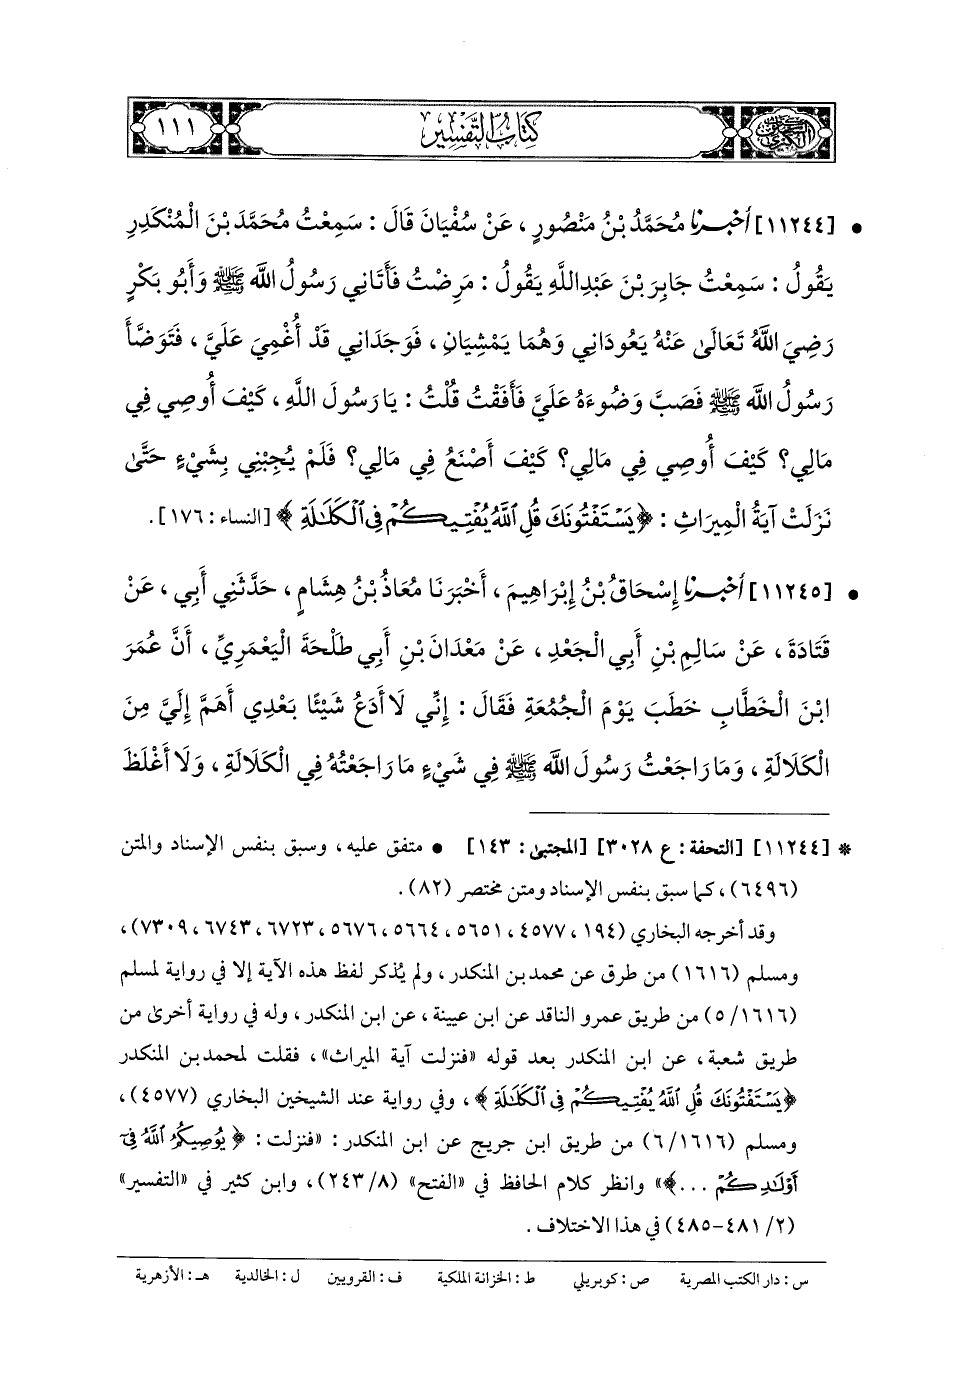 السنن الكبرى كتاب التفسير ١١١
• [١١٢٤٤] أخبرنا مُحَمَّدُ بْنُ مَنْصُورٍ ، عَنْ سُفْيَانَ قَالَ : سَمِعْتُ مُحَمَّدَ بْنَ الْمُنْكَدِرِ
يَقُولُ : سَمِعْتُ جَابِرَ بْنَ عَبْدِ اللَّهِ يَقُولُ : مَرِضْتُ فَأَتَانِي رَسُولُ اللَّه ﷺ وَأَبُو بَكْرٍ
رَضِيَ اللَّهُ تَعَالَى عَنْهُ يَعُودَانِي وَهُمَا يَمْشِيَانِ ، فَوَجَدَانِي قَدْ أُغْمِيَ عَلَيَّ ، فَتَوَضَّأَ
رَسُولُ اللَّه ﷺ فَصَبَّ وَضُوءَهُ عَلَيَّ فَأَفَقْتُ قُلْتُ : يَا رَسُولَ اللهِ ، كَيْفَ أُوصِي فِي
مَالِي؟ كَيْفَ أُوصِي فِي مَالِي؟ كَيْفَ أَصْنَعُ فِي مَالِي؟ فَلَمْ يُجِبْنِي بِشَيْءٍ حَتَّى
نَزَلَتْ آيَةُ الْمِيرَاثِ : ﴿ يَسْتَفْتُونَكَ قُلِ ٱللَّهُ يُفْتِيكُمْ فِى ٱلْكَلَـٰلَةِ ﴾ [النساء : ١٧٦].
• [١١٢٤٥] أخبرنا إِسْحَاقُ بْنُ إِبْرَاهِيمَ ، أَخْبَرَنَا مُعَاذُ بْنُ هِشَامٍ ، حَدَّثَنِي أَبِي ، عَنْ
قَتَادَةَ ، عَنْ سَالِمِ بْنِ أَبِي الْجَعْدِ ، عَنْ مَعْدَانَ بْنِ أَبِي طَلْحَةَ الْيَعْمَرِيِّ ، أَنَّ عُمَرَ
ابْنَ الْخَطَّابِ خَطَبَ يَوْمَ الْجُمُعَةِ فَقَالَ : إِنِّي لَا أَدَعُ شَيْئًا بَعْدِي أَهَمَّ إِلَيَّ مِنَ
الْكَلَالَةِ ، وَمَا رَاجَعْتُ رَسُولَ اللَّه ﷺ فِي شَيْءٍ مَا رَاجَعْتُهُ فِي الْكَلَالَةِ ، وَلَا أَغْلَظَ
* [١١٢٤٤] [التحفة : ع ٣٠٢٨] [المجتبى : ١٤٣] • متفق عليه ، وسبق بنفس الإسناد والمتن
(٦٤٩٦) ، كما سبق بنفس الإسناد ومتن مختصر (٨٢) .
وقد أخرجه البخاري (١٩٤ ، ٤٥٧٧ ، ٥٦٥١ ، ٥٦٦٤ ، ٥٦٧٦ ، ٦٧٢٣ ، ٦٧٤٣ ، ٧٣٠٩) ،
ومسلم (١٦١٦) من طرق عن محمد بن المنكدر ، ولم يُذكر لفظ هذه الآية إلا في رواية لمسلم
(١٦١٦/ ٥) من طريق عمرو الناقد عن ابن عيينة ، عن ابن المنكدر ، وله في رواية أخرى من
طريق شعبة ، عن ابن المنكدر بعد قوله «فنزلت آية الميراث» ، فقلت لمحمد بن المنكدر
﴿يَسْتَفْتُونَكَ قُلِ ٱللَّهُ يُفْتِيكُمْ فِى ٱلْكَلَـٰلَةِ ﴾ ، وفي رواية عند الشيخين البخاري (٤٥٧٧) ،
ومسلم (١٦١٦/ ٦) من طريق ابن جريج عن ابن المنكدر : «فنزلت : ﴿ يُوصِيكُمُ ٱللَّهُ فِىٓ
أَوْلَـٰدِكُمْ ...﴾» وانظر كلام الحافظ في «الفتح» (٢٤٣/٨) ، وابن كثير في «التفسير»
(٢/ ٤٨١-٤٨٥) في هذا الاختلاف .
س : دار الكتب المصرية ص : كوبريلي ط : الخزانة الملكية ف : القرويين ل : الخالدية هـ : الأزهرية